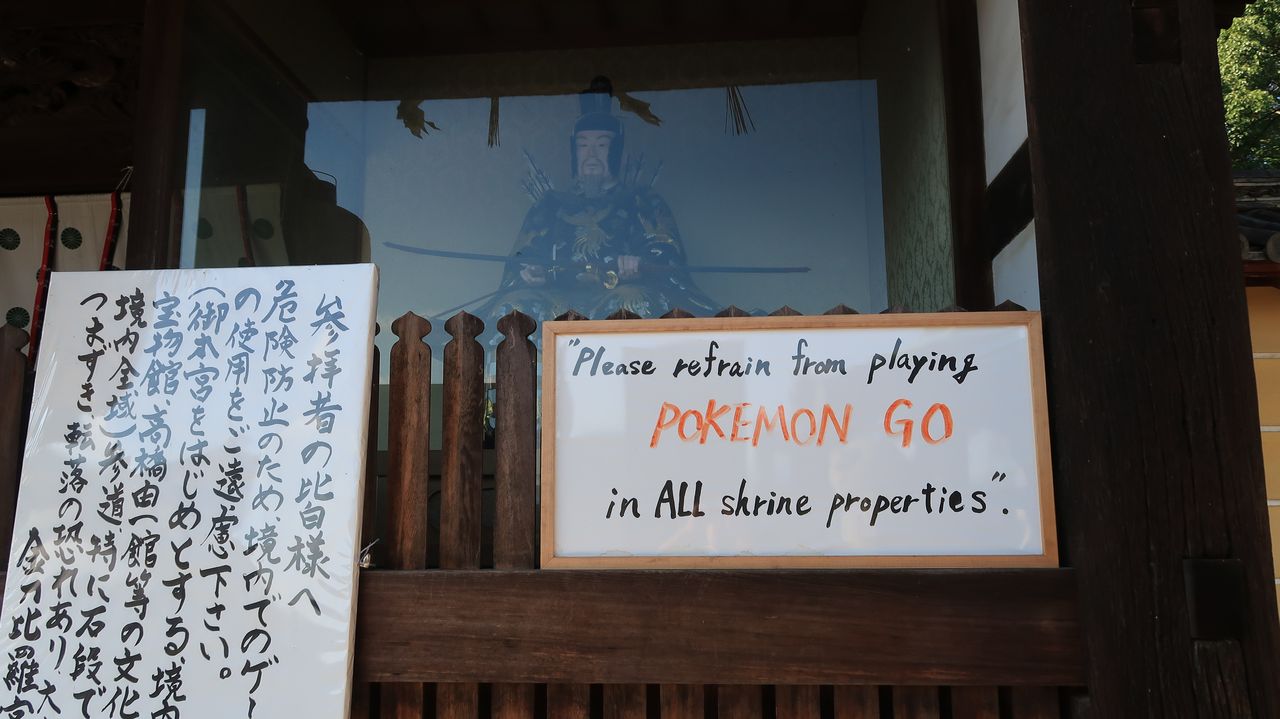 参拝者の皆様へ
危険防止のため、境内でのゲー
の使用をご遠慮下さい。
(御本宮をはじめとする、境内
宝物館、高橋由一館等の文化
境内全域)参道、特に石段で
つまずき、転落の恐れあり、大
金刀比羅宮
"Please refrain from playing
POKEMON GO
in ALL shrine properties".